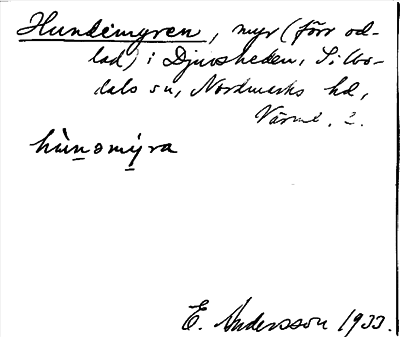 Hundemyren, myr (förr od-
lad) i Djuvsheden, Silbo-
dals sn, Nordmarks hd,
Värml. 2.
hùnₒmýra
E. Andersson 1933.